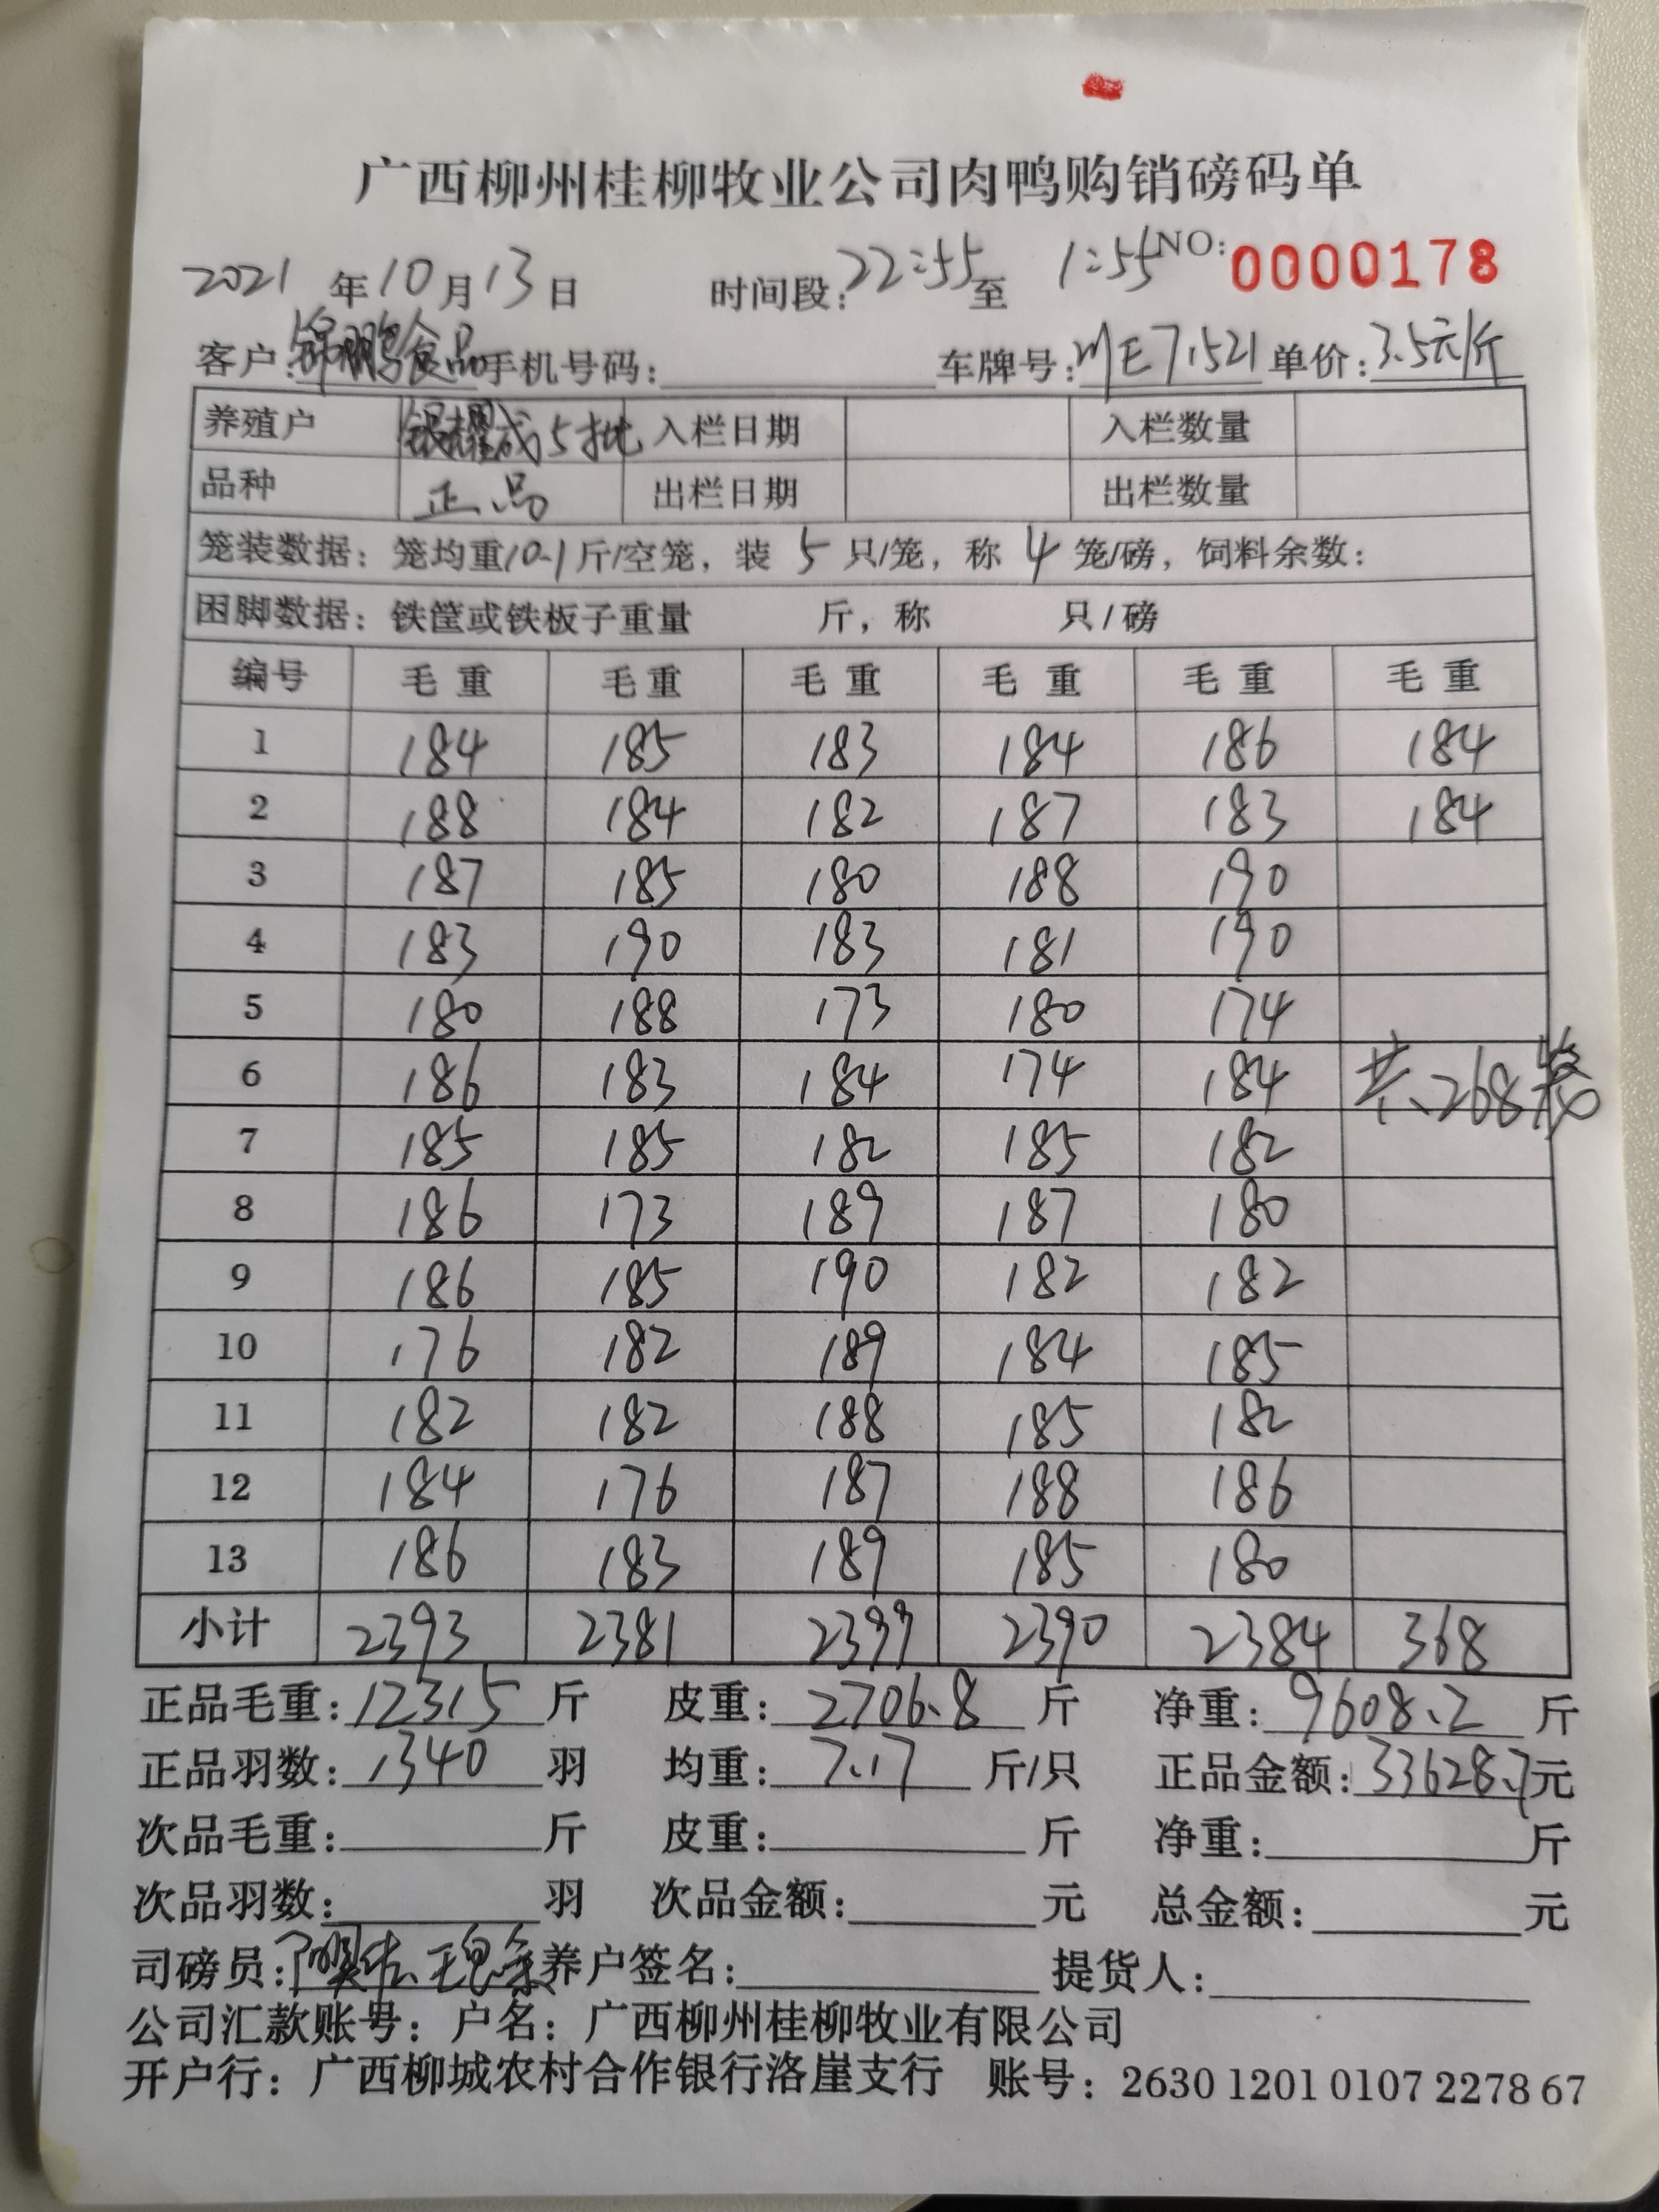 广西柳州桂柳牧业公司肉鸭购销磅码单
2021 年 10 月 13 日 时间段: 22:55 至 1:55 NO: 0000178
客户: 锦鹏食品 手机号码: 车牌号: E71521 单价: 3.5元/斤
养殖户 银耀成5批 入栏日期 入栏数量
品种 正品 出栏日期 出栏数量
笼装数据: 笼均重10.1斤/空笼, 装 5 只/笼, 称 4 笼/磅, 饲料余数:
困脚数据: 铁筐或铁板子重量 斤, 称 只/磅
编号 毛重 毛重 毛重 毛重 毛重 毛重
1 184 185 183 184 186 184
2 188 184 182 187 183 184
3 187 185 180 188 190
4 183 190 183 181 190
5 180 188 173 180 174
6 186 183 184 174 184 共268笼
7 185 185 182 185 182
8 186 173 189 187 180
9 186 185 190 182 182
10 176 182 189 184 185
11 182 182 188 185 182
12 184 176 187 188 186
13 186 183 189 185 180
小计 2393 2381 2399 2390 2384 368
正品毛重: 12315 斤 皮重: 2706.8 斤 净重: 9608.2 斤
正品羽数: 1340 羽 均重: 7.17 斤/只 正品金额: 33628.7 元
次品毛重: 斤 皮重: 斤 净重: 斤
次品羽数: 羽 次品金额: 元 总金额: 元
司磅员: 养户签名: 提货人:
公司汇款账号: 户名: 广西柳州桂柳牧业有限公司
开户行: 广西柳城农村合作银行洛崖支行 账号: 2630 1201 0107 2278 67